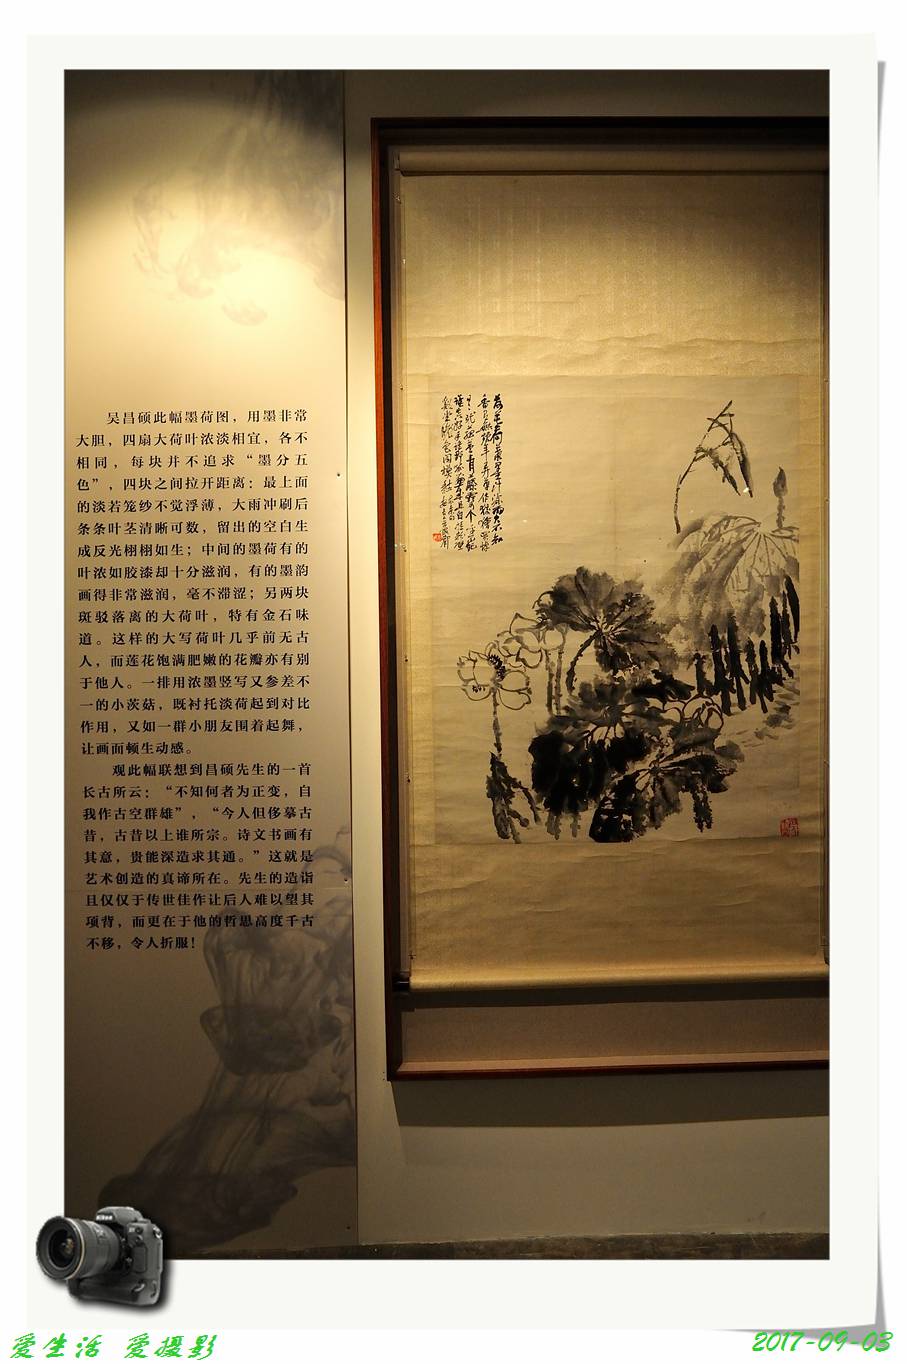 吴昌硕此幅墨荷图，用墨非常
大胆，四扇大荷叶浓淡相宜，各不
相同，每块并不追求“墨分五
色”，四块之间拉开距离：最上面
的淡若笼纱不觉浮薄，大雨冲刷后
条条叶茎清晰可数，留出的空白生
成反光栩栩如生；中间的墨荷有的
叶浓如胶漆却十分滋润，有的墨韵
画得非常滋润，毫不滞涩；另两块
斑驳落离的大荷叶，特有金石味
道。这样的大写荷叶几乎前无古
人，而莲花饱满肥嫩的花瓣亦有别
于他人。一排用浓墨竖写又参差不
一的小茨菇，既衬托淡荷起到对比
作用，又如一群小朋友围着起舞，
让画面顿生动感。
观此幅联想到昌硕先生的一首
长古所云：“不知何者为正变，自
我作古空群雄”，“今人但侈摹古
昔，古昔以上谁所宗。诗文书画有
其意，贵能深造求其通。”这就是
艺术创造的真谛所在。先生的造诣
且仅仅于传世佳作让后人难以望其
项背，而更在于他的哲思高度千古
不移，令人折服！
爱生活 爱摄影
2017-09-03